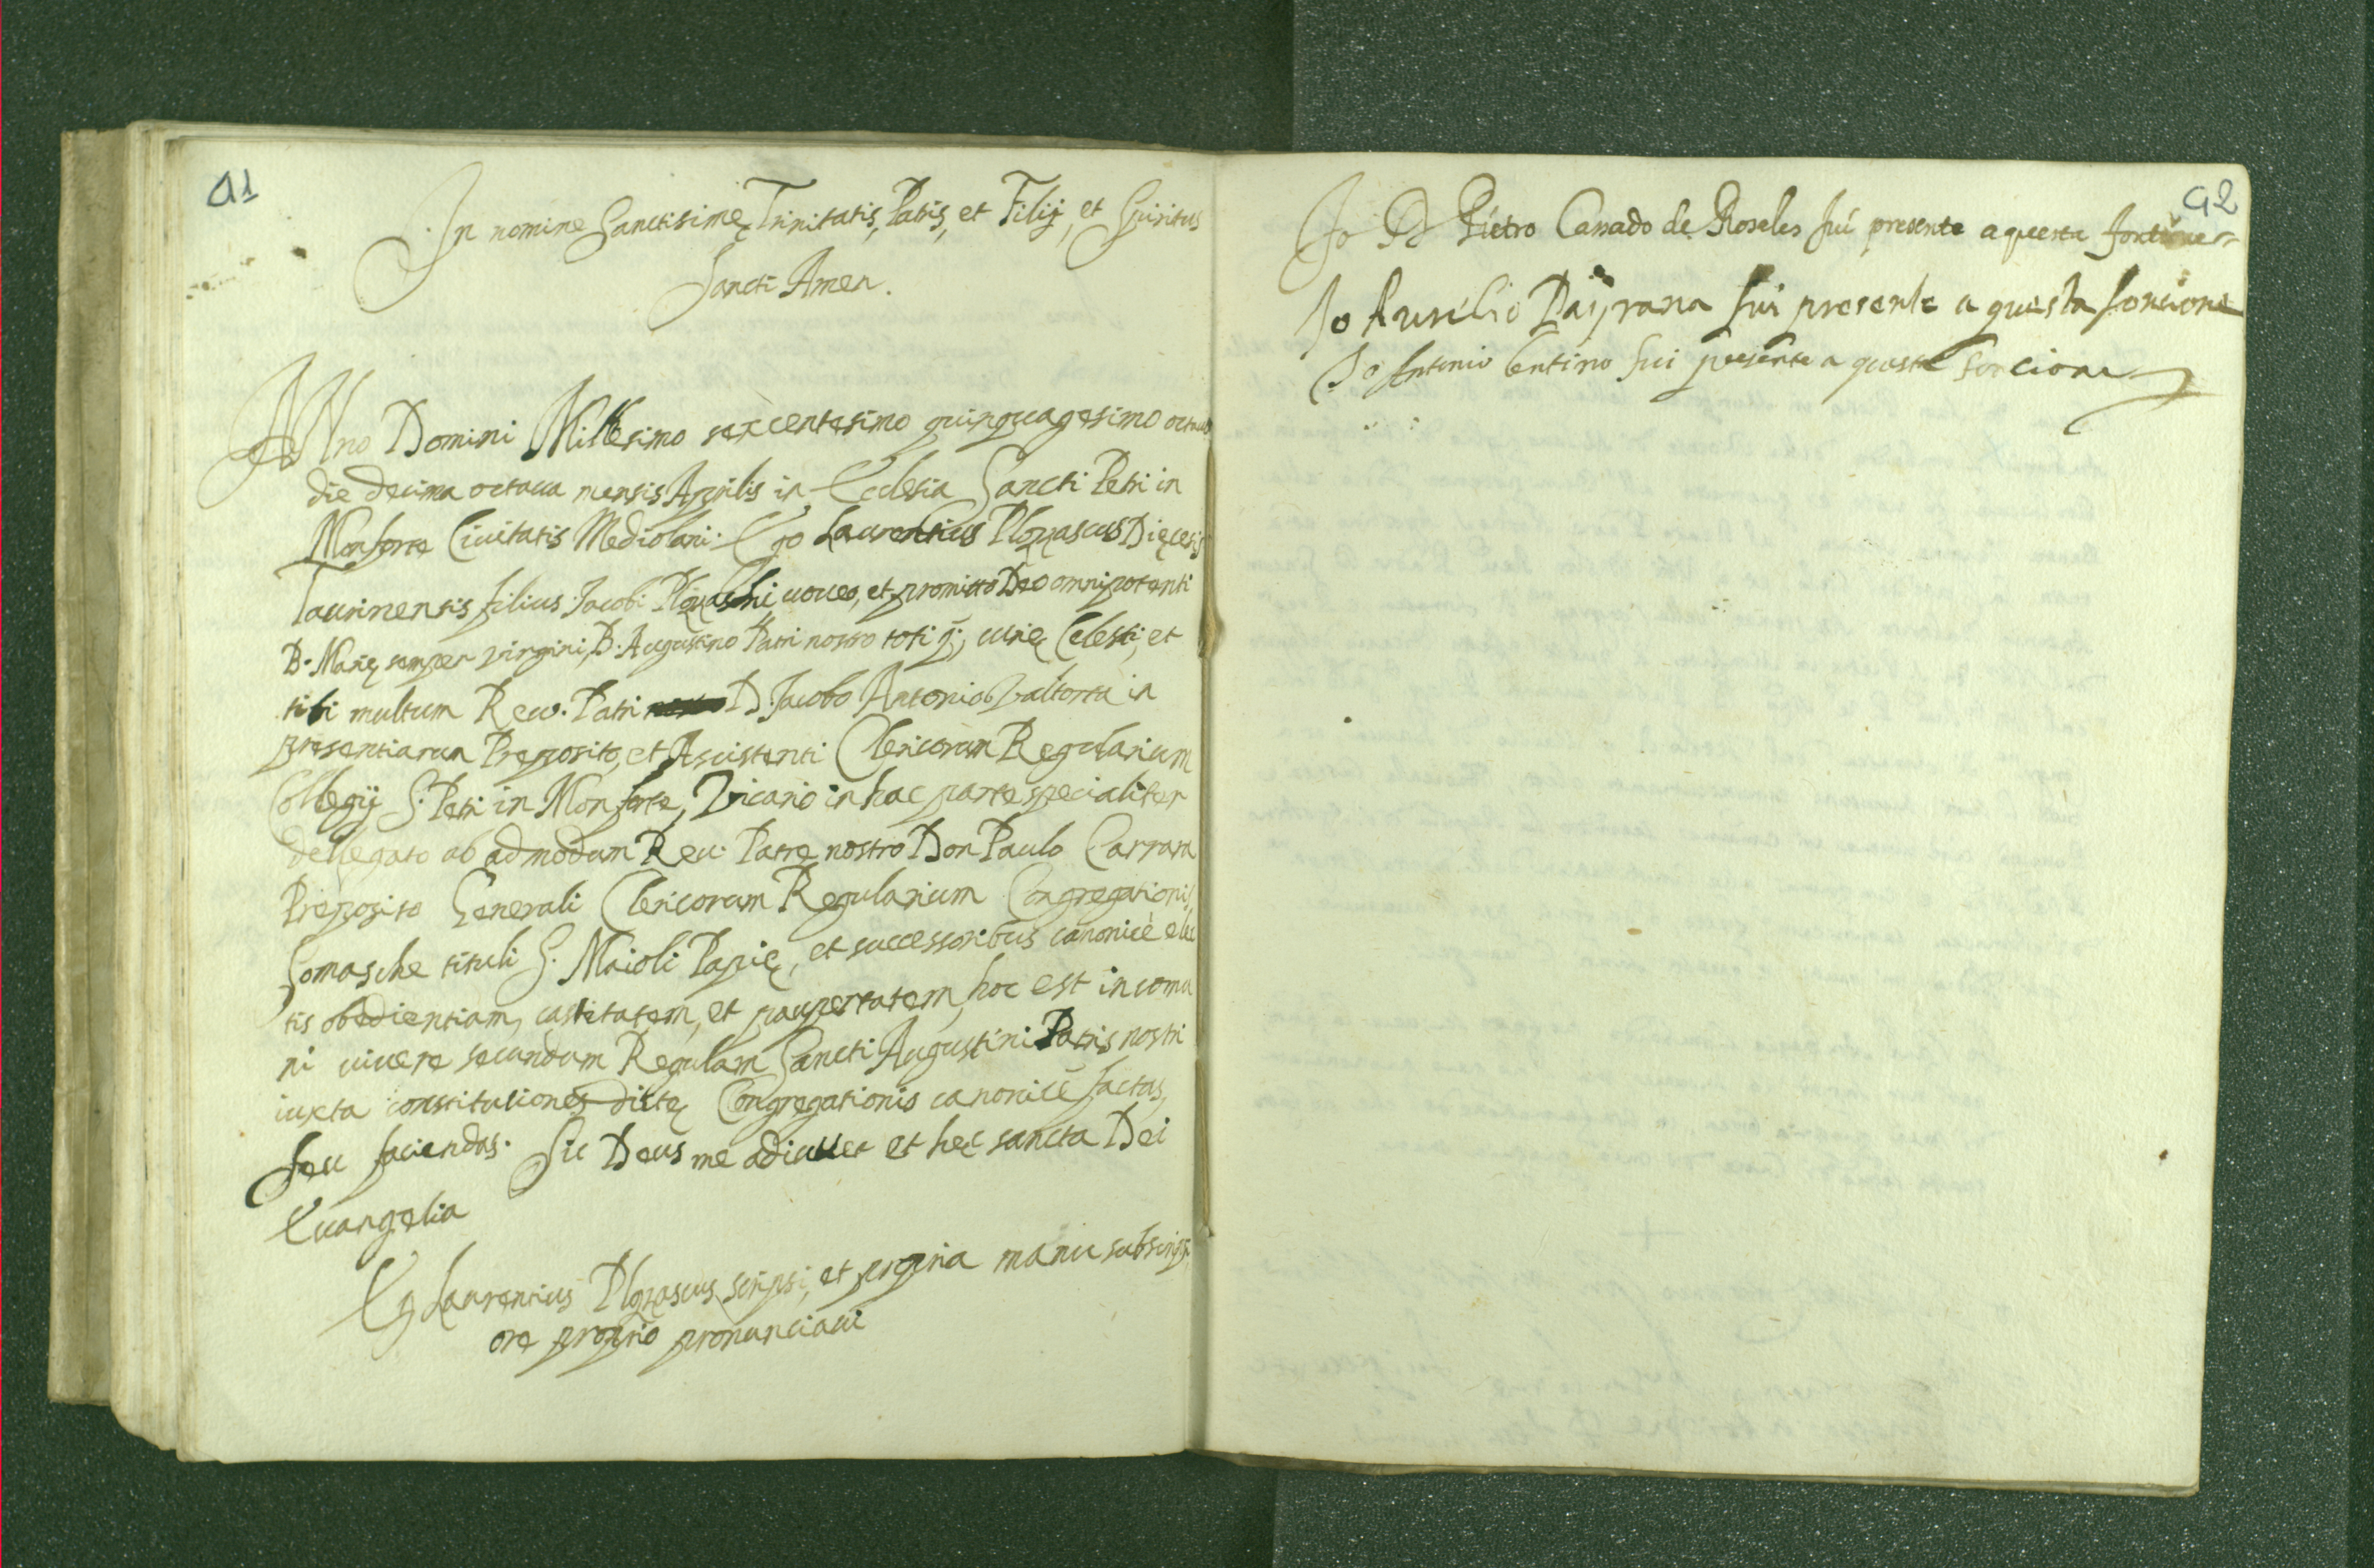 91
In nomine Sanctisimę Trinitatis, Patris, et Filij, et Spiritus
Sancti Amen.
ANno Domini Millesimo sexcentesimo quinquagesimo octauo
die decima octaua mensis Aprilis in Ecclesia Sancti Petri in
Monforte Ciuitatis Mediolani: Ego Laurentius Plozascus Dięcesis
Taurinensis filius Jacobi uoueo, et promitto Deo omnipotenti
B. Marię semper virgini, B. Augustino Patri nostro toti q; curię Celesti, et
tibi multum Reu. Patri D. Jacobo Antonio Valtorta in
presentiarum Preposito, et Assistenti Clericorum Regularium
Collegij S. Petri in Monforte, Vicario in hac parte specialiter
dellegato ab admodum Reu. Patre nostro Don Paulo Carrara
Preposito Generali Clericorum Regularium Congregationis
Somasche tituli S. Maioli Papię, et successoribus canonicè elec
tis obedientiam, castitatem, et paupertatem, hoc est in comu
ni uiuere secundum Regulam Sancti Augustini Patris nostri
iuxta constitutiones dictę Congregationis canonicè factas,
seu faciendas. Sic Deus me adiuuet et hęc sancta Dei
Euangelia
Ego Laurentius Plozascus scripsi, et propria manu subscripsi
ore proprio pronunciaui
92
Io D Pietro de Roseles fui presente a questa
Io Aurelio fui presente a questa foncione
Io Antonio fui presente a questa foncione